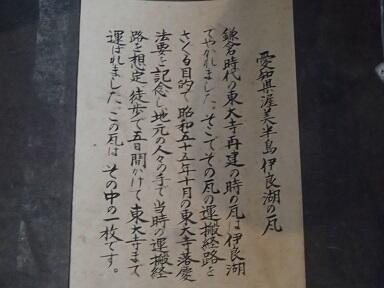 愛知県渥美半島伊良湖の瓦
鎌倉時代の東大寺再建の時の瓦は伊良湖
でやかれました。そこでその瓦の運搬経路を
さぐる目的で昭和五十五年十月の東大寺落慶
法要を記念し地元の人々の手で当時の運搬経
路を想定、徒歩で五日間かけて東大寺まで
運ばれました。この瓦は その中の一枚です。